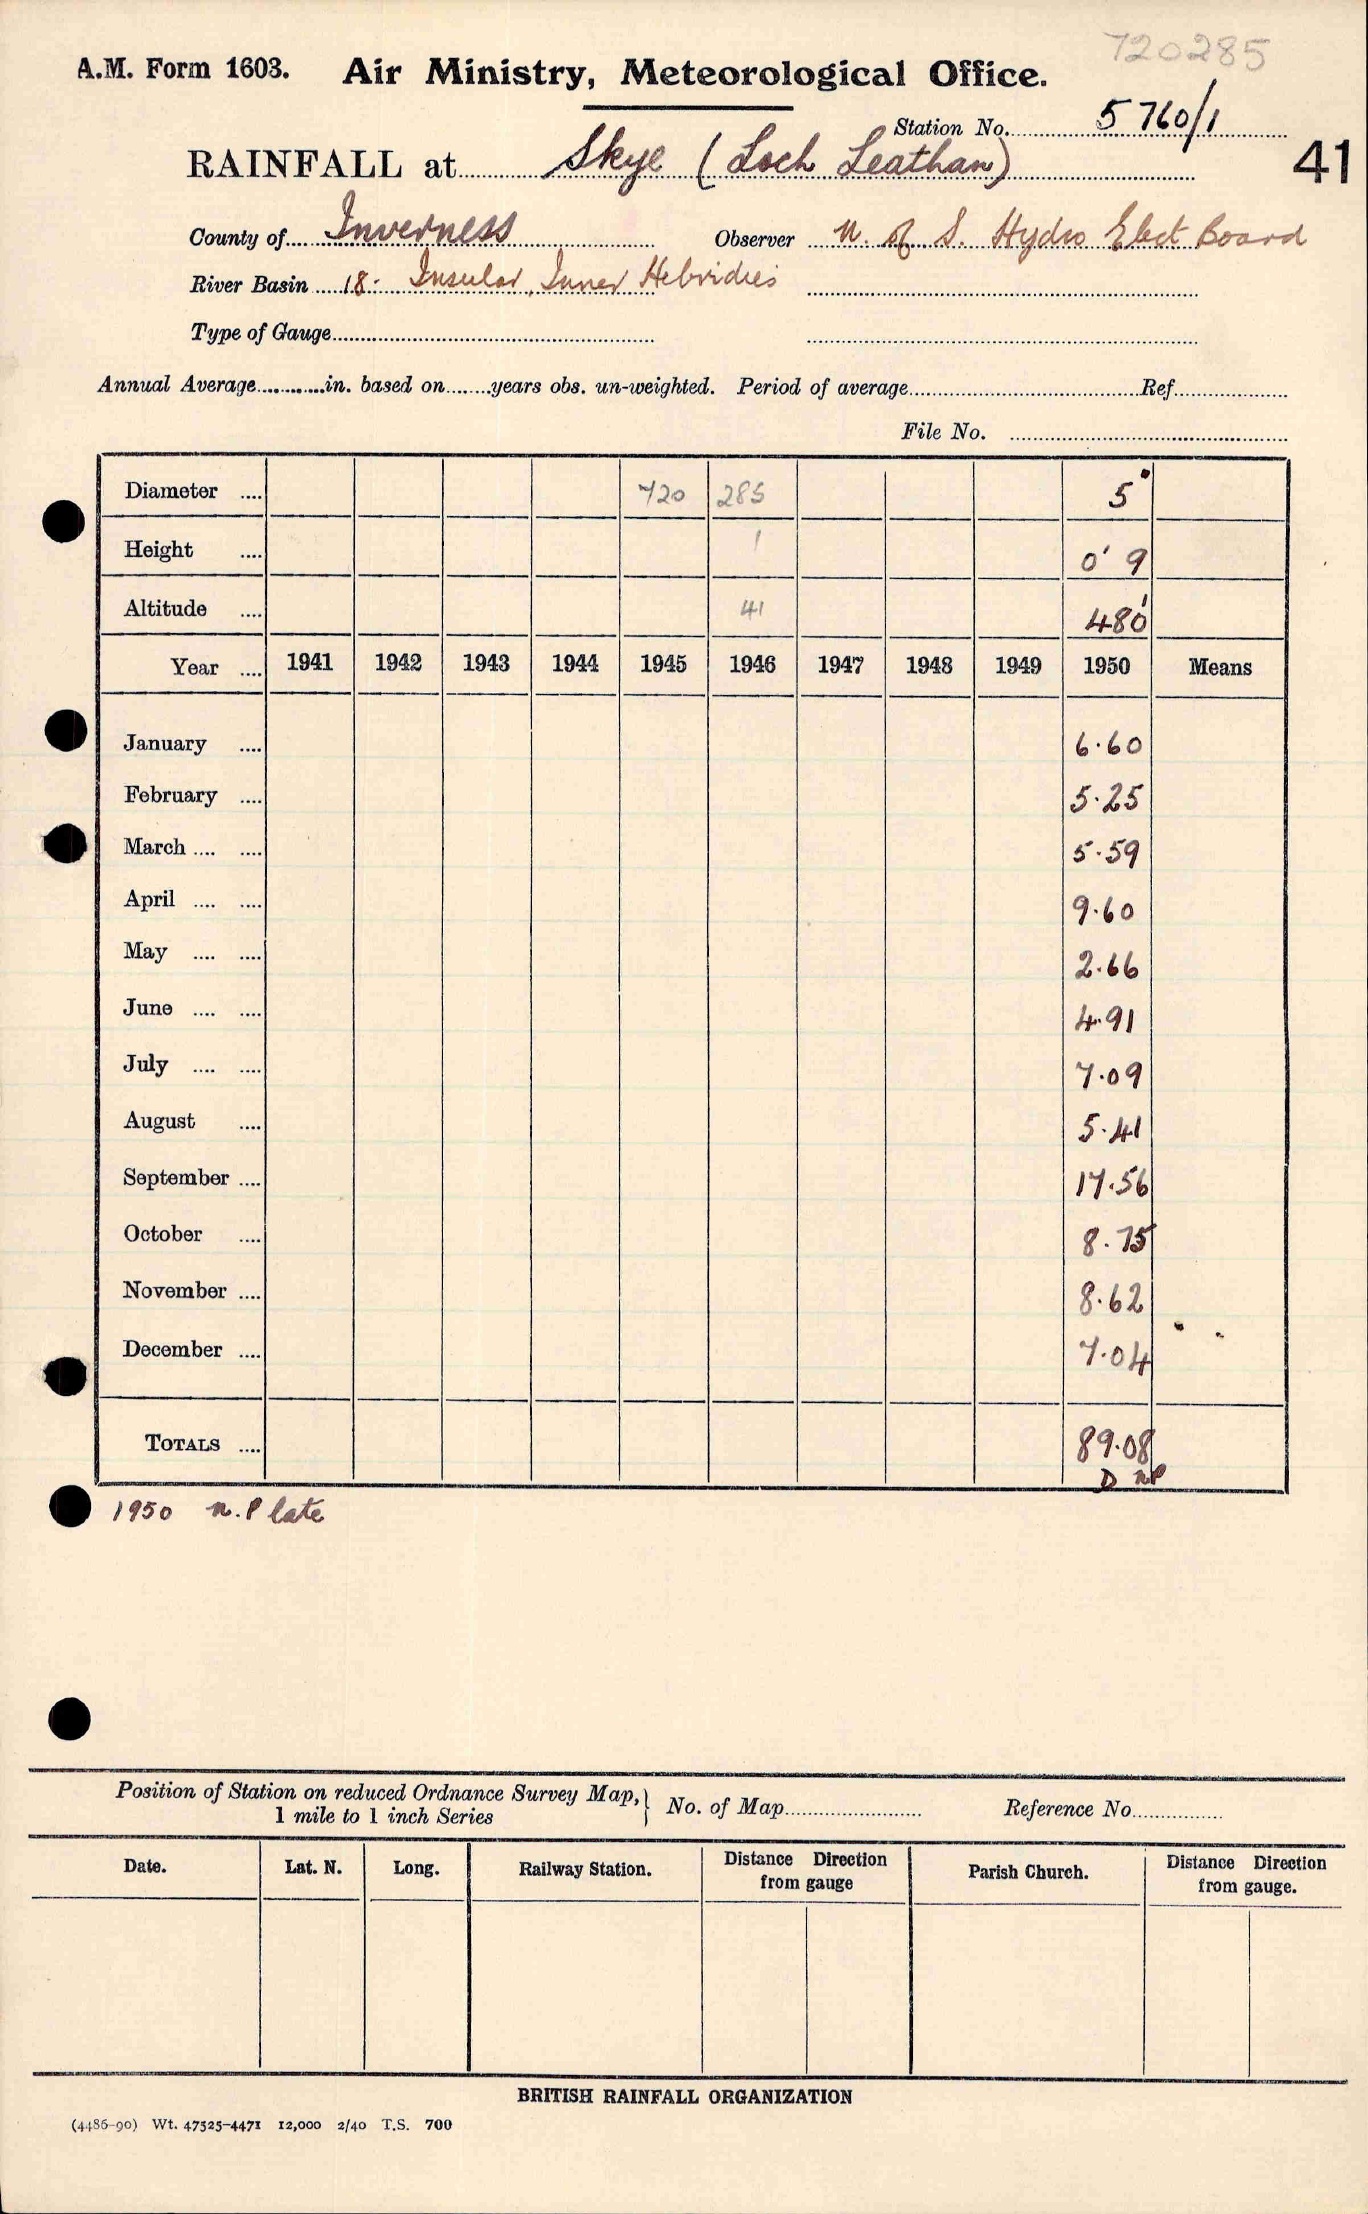 720285
A.M. Form 1603. Air Ministry, Meteorological Office.
Station No. 5760/1
41
RAINFALL at Skye (Loch Leathan)
County of Inverness Observer N. of S. Hydro Elect Board
River Basin 18. Insular, Inner Hebridies
Type of Gauge
Annual Average in. based on years obs. un-weighted. Period of average Ref.
File No.
Diameter .... 720 285 5"
Height .... 1 0' 9
Altitude .... 41 480'
Year .... 1941 1942 1943 1944 1945 1946 1947 1948 1949 1950 Means
January .... 6.60
February .... 5.25
March .... .... 5.59
April .... .... 9.60
May .... .... 2.66
June .... .... 4.91
July .... .... 7.09
August .... 5.41
September .... 17.56
October .... 8.75
November .... 8.62
December .... 7.04
TOTALS .... 89.08
D nP
1950 n.P late
Position of Station on reduced Ordnance Survey Map, 1 mile to 1 inch Series } No. of Map Reference No.
Date. Lat. N. Long. Railway Station. Distance Direction from gauge Parish Church. Distance Direction from gauge.
BRITISH RAINFALL ORGANIZATION
(4486-90) Wt. 47525-4471 12,000 2/40 T.S. 700